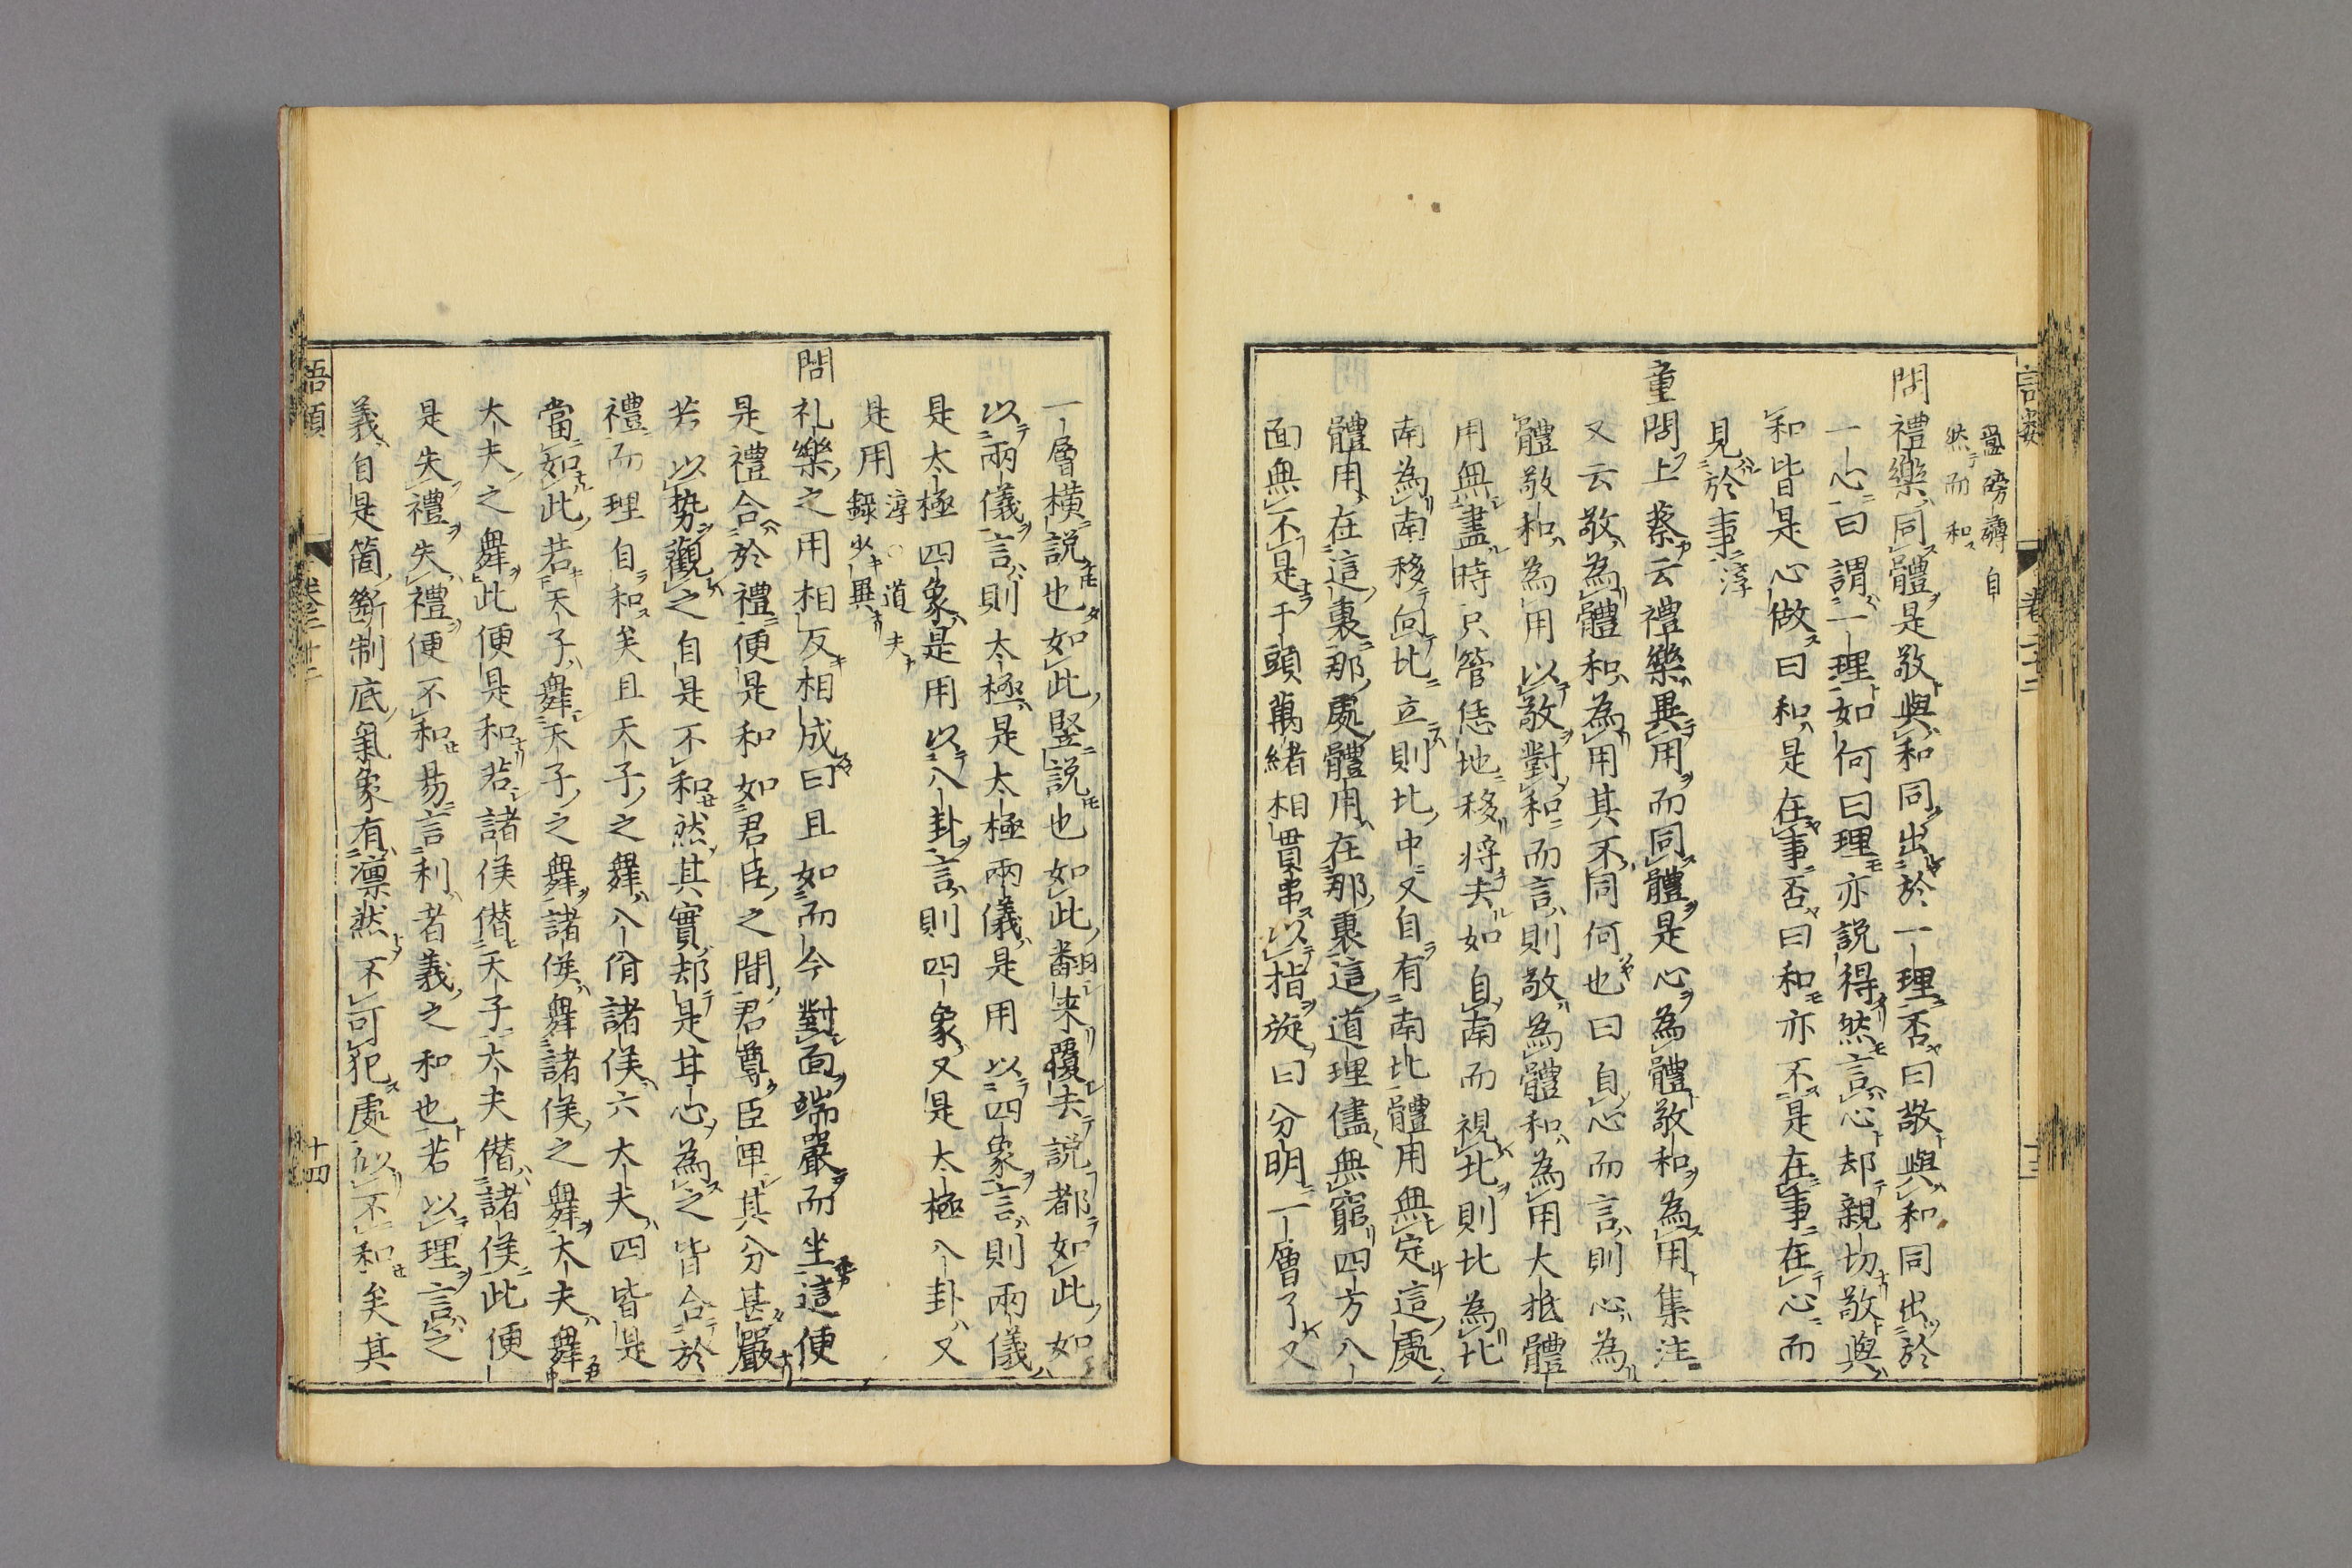 盈磅礴自
然而和
問禮樂同體是敬與和同出於一理否曰敬與和同出於
一心曰謂一理如何曰理亦説得然言心却親切敬與
和皆是心做曰和是在事否曰和亦不是在事在心而
見於事淳
童問上蔡云禮樂異用而同體是心為體敬和為用集注
又云敬為體和為用其不同何也曰自心而言則心為
體敬和為用以敬對和而言則敬為體和為用大抵體
用無盡時只管恁地移将去如自南而視北則北為北
南為南移向北立則北中又自有南北體用無定這處
體用在這裏那處體用在那裏這道理儘無窮四方八
面無不是千頭萬緒相貫串以指旋曰分明一層了又
一層横説也如此竪説也如此翻来覆去説都如此如
以兩儀言則太極是太極兩儀是用以四象言則兩儀
是太極四象是用以八卦言則四象又是太極八卦又
是用淳○道夫録少異
問礼樂之用相反相成曰且如而今對面端嚴而坐這便
是禮合於禮便是和如君臣之間君尊臣卑其分甚嚴
若以勢觀之自是不和然其實却是甘心為之皆合於
禮而理自和矣且天子之舞八佾諸侯六大夫四皆是
當如此若天子舞天子之舞諸侯舞諸侯之舞大夫舞
大夫之舞此便是和若諸侯僣天子大夫僣諸侯此便
是失禮失禮便不和易言利者義之和也若以理言之
義自是箇斷制底氣象有凛然不可犯處似不和矣其
語類
卷二十二
十四